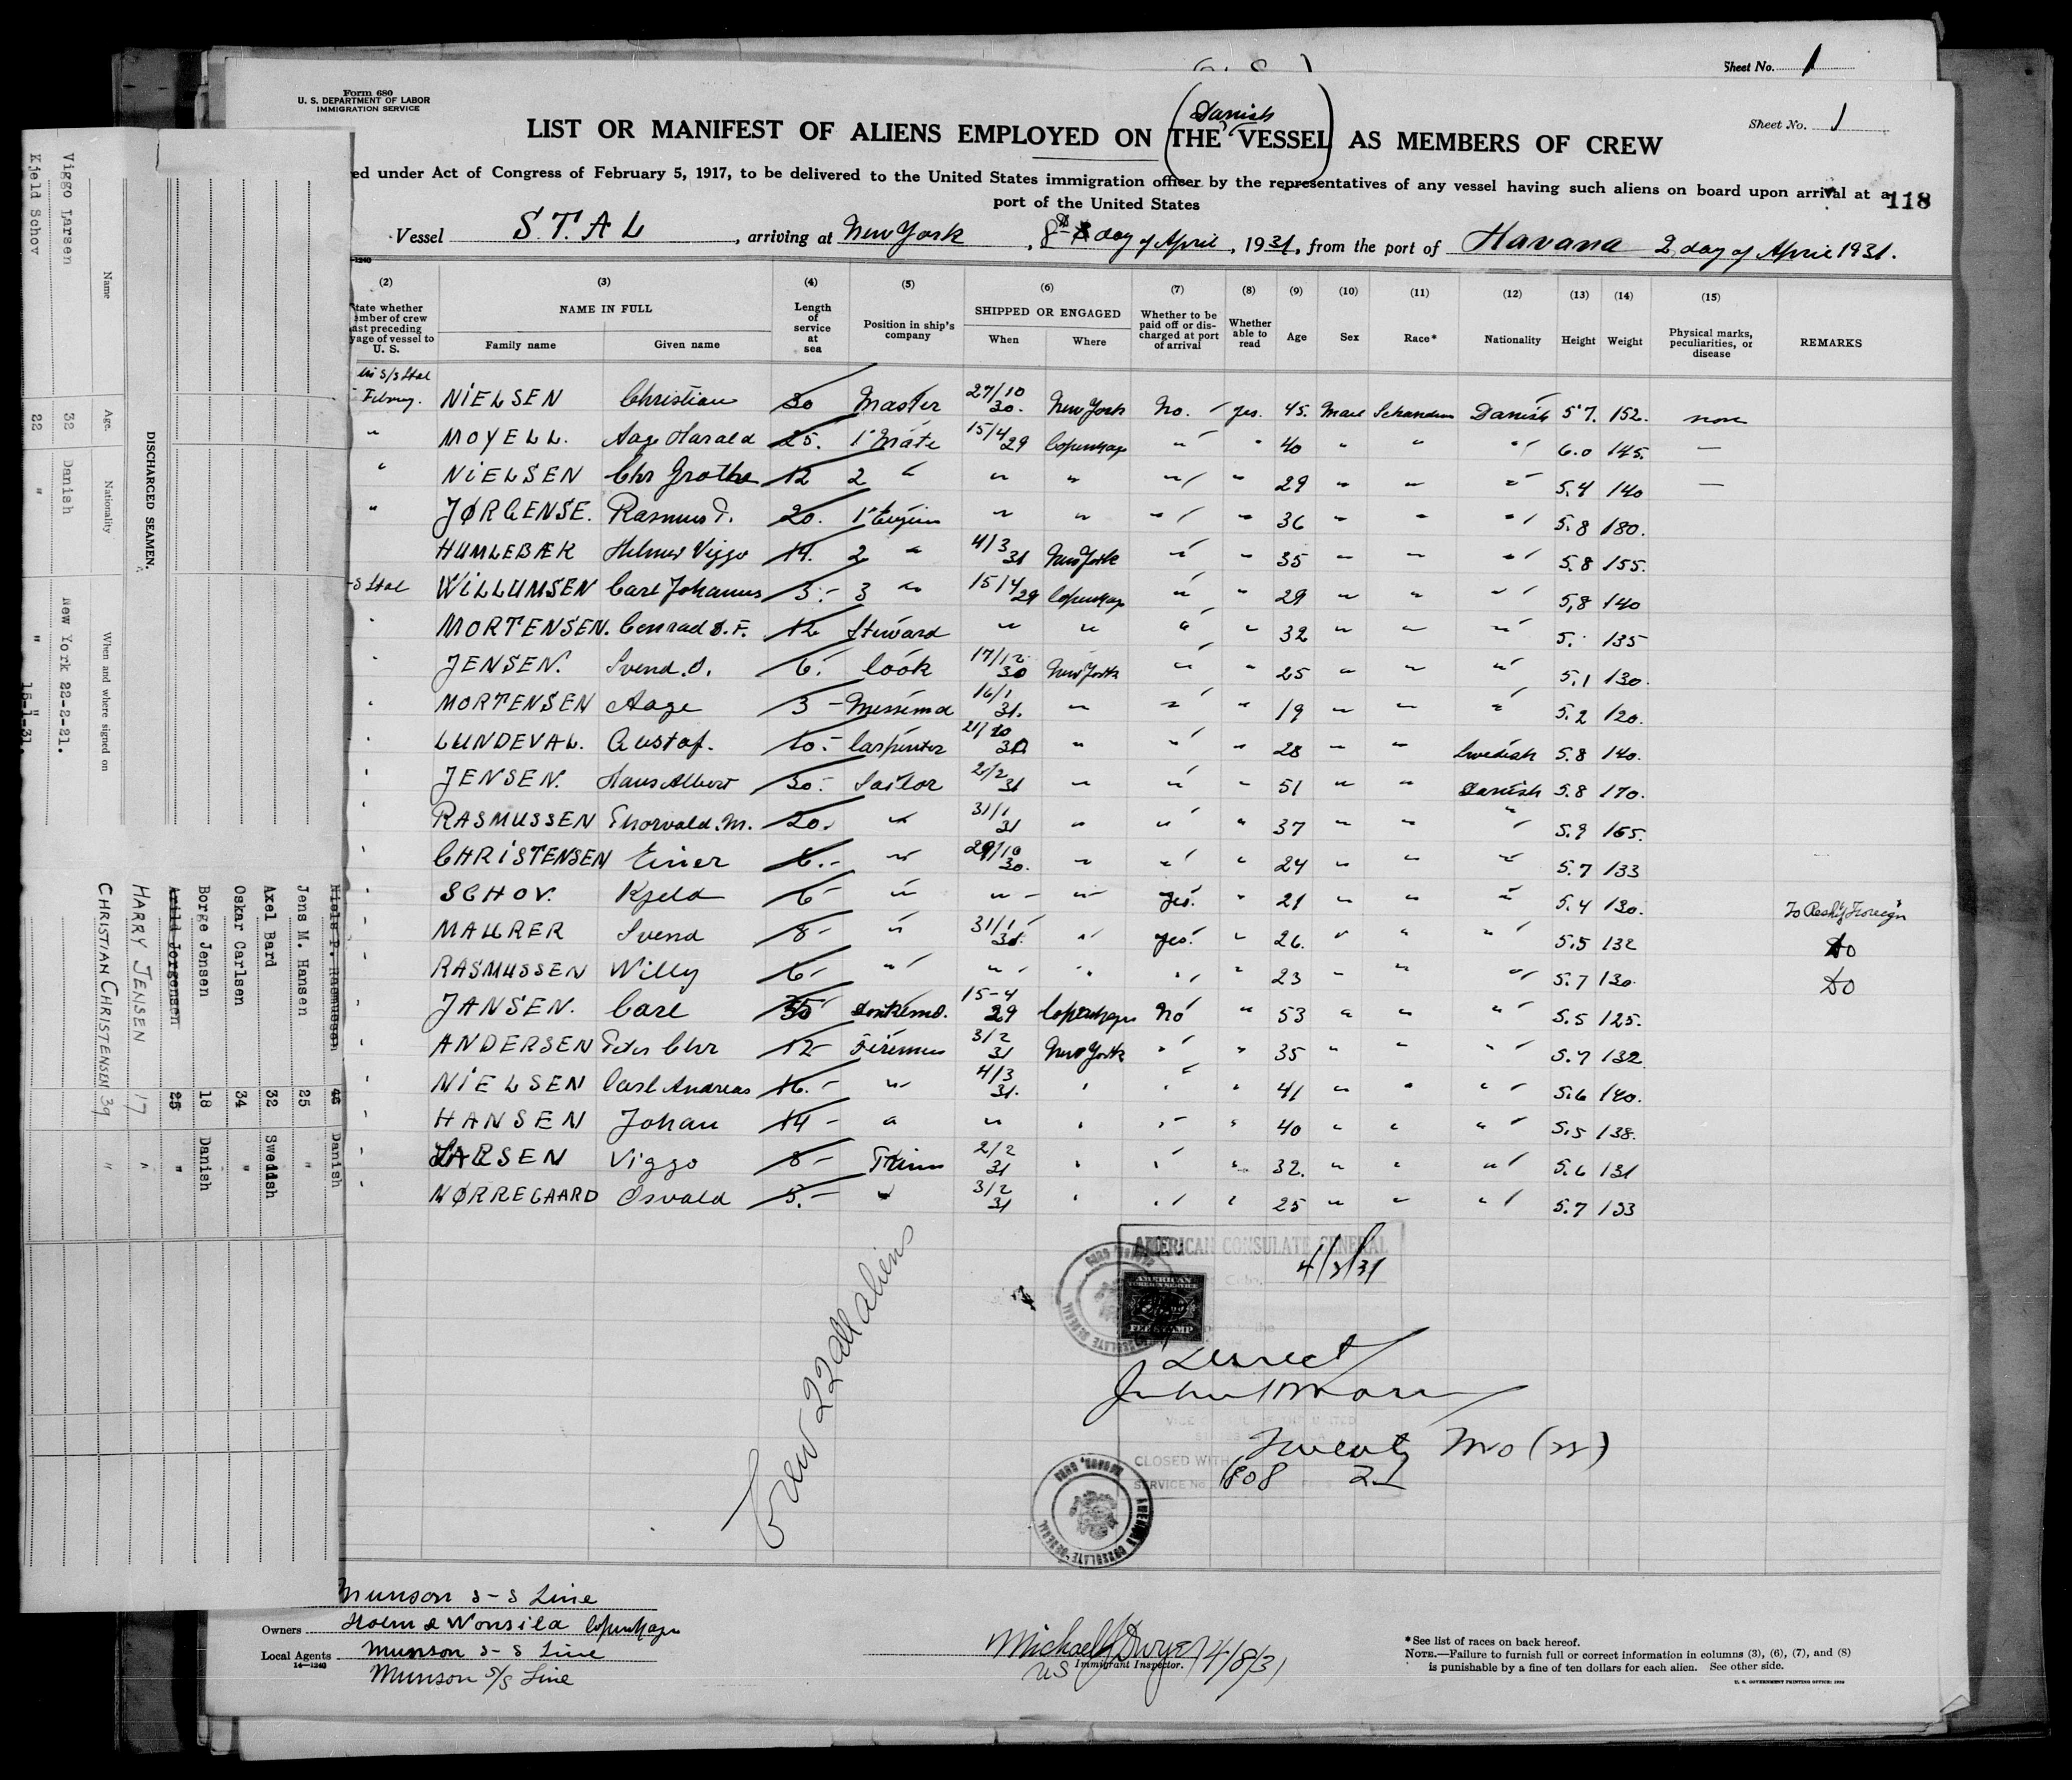 Sheet No. 1
Form 680
U. S. DEPARTMENT OF LABOR
IMMIGRATION SERVICE
Sheet No. 1
Danish
LIST OR MANIFEST OF ALIENS EMPLOYED ON (THE VESSEL) AS MEMBERS OF CREW
ed under Act of Congress of February 5, 1917, to be delivered to the United States immigration officer by the representatives of any vessel having such aliens on board upon arrival at a
port of the United States
118
Vessel S.T.A L, arriving at New York, 8th day of April, 1931, from the port of Havana 2 day of April 1931.
(2) (3) (4) (5) (6) (7) (8) (9) (10) (11) (12) (13) (14) (15)
tate whether mber of crew ast preceding yage of vessel to U. S.
NAME IN FULL
Family name Given name
Length of service at sea
Position in ship's company
SHIPPED OR ENGAGED
When Where
Whether to be paid off or discharged at port of arrival
Whether able to read
Age Sex Race* Nationality Height Weight
Physical marks, peculiarities, or disease
REMARKS
NiELSEN Christian 30 Master 27/10 30. New York No. yes. 45. Male Danish 5'7. 152. none
" MOYELL. Aage Harald 25. 1' Mate 15/4 29 Copenhag " " 40 " " " 6.0 145. —
" NiELSEN Chr Grothe 12 2 " " " " " 29 " " " 5.4 140 —
" JØRGENSE. Rasmus P. 20. 1' Engin " " " " 36 " " " 5.8 180.
HUMLEBÆK Helmer Viggo 14. 2 " 4/3 31 New York " " 35 " " " 5.8 155.
WiLLUMSEN Carl Johannes 3.- 3 " 15/4 29 Copenhag " " 29 " " " 5,8 140
MORTENSEN. Conrad S.F. 12 Steward " " " " 32 " " " 5. 135
JENSEN. Svend.O. 6. Cook 17/12 30 New York " " 25 " " " 5.1 130.
MORTENSEN Aage 3 - 16/1 31. " " " 19 " " " 5.2 120.
LUNDEVAL. Gustof. 10- Carpenter " " " 28 " " Swedish 5.8 140.
JENSEN. Hans Albert 30- Sailor 2/2 31 " " " 51 " " Danish 5.8 170.
RASMUSSEN Thorvald.M. 20. " 31/1 31 " " " 37 " " " 5.9 165.
CHRiSTENSEN Einer 6.- " 29/10 30. " " " 24 " " " 5.7 133
SCHOV. Kjeld 6- " " " yes. " 21 " " " 5.4 130. To Reship Foreign
MAURER Svend 8- " 31/1 31. " yes. " 26. " " " 5.5 132 Do
RASMUSSEN Willy 6- " " " " " 23 " " " 5.7 130. Do
JANSEN. Carl 35 Donkeymd. 15-4 29 Copenhagen No " 53 " " " 5.5 125.
ANDERSEN Peter Chr 12- Firemen 3/2 31 New York " " 35 " " " 5.7 132
NiELSEN Carl Andreas 16.- " 4/3 31. " " " 41 " " " 5.6 140.
HANSEN Johan 14- " " " " " 40 " " " 5.5 138.
LARSEN Viggo 8- Trim 2/2 31 " " " 32. " " " 5.6 131
NØRREGAARD Osvald 3.- " 3/2 31 " " " 25 " " " 5.7 133
Crew 22 all aliens
AMERICAN CONSULATE GENERAL
4/2/31
AMERICAN
FOREIGN SERVICE
FEE STAMP
Direct
Twenty two (22)
CLOSED WITH
SERVICE No. 1808 21
Munson S-S Line
Owners Holm & Wonsild Copenhagen
Local Agents Munson S-S Line
14—1240
Munson S/S Line
Michael J Dwyer 4/8/31
US Immigrant Inspector.
*See list of races on back hereof.
NOTE.—Failure to furnish full or correct information in columns (3), (6), (7), and (8)
is punishable by a fine of ten dollars for each alien. See other side.
U. S. GOVERNMENT PRINTING OFFICE: 1930
DISCHARGED SEAMEN.
Name Age. Nationality When and where signed on
Viggo Larsen 32 Danish New York 22-2-31.
Kjeld Schov 22 " " " 15-1-31.
Niels P. Rasmussen 46 Danish
Jens M. Hansen 25 "
Axel Bard 32 Swedish
Oskar Carlsen 34 "
Borge Jensen 18 Danish
Arild Jorgensen 25 "
HARRY JENSEN 17 "
CHRISTIAN CHRISTENSEN 39 "